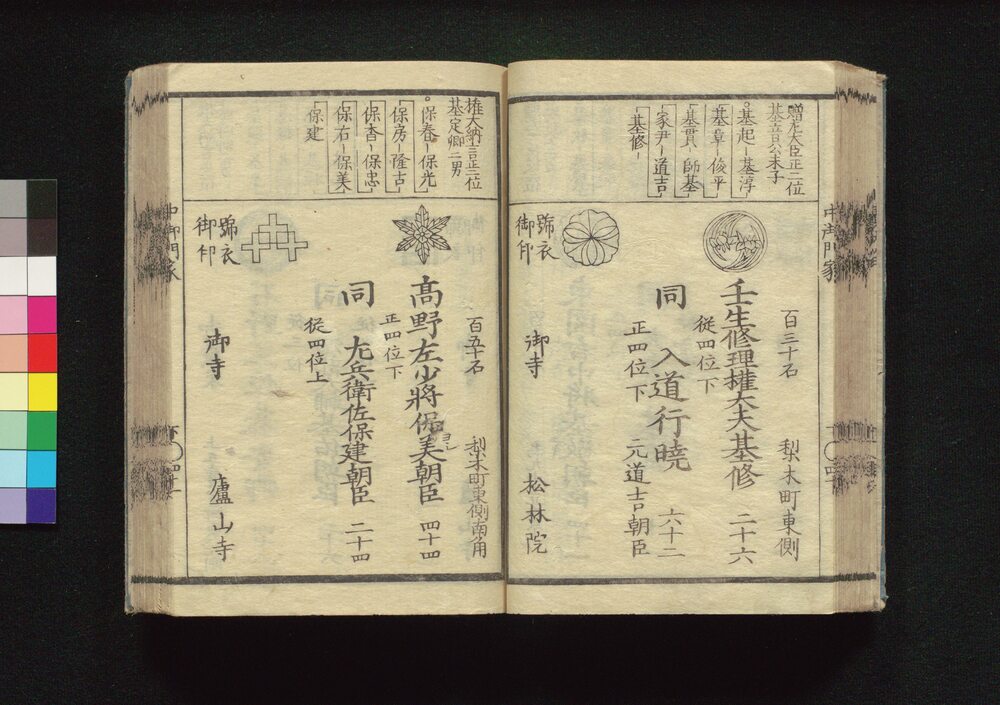 贈左大臣正二位
基音公末子
基起－基淳
基章－俊平
基貫－師基
家尹－道吉
基修－
百三十石
梨木町東側
壬生修理權大夫基修
二十六
従四位下
同
入道行曉
六十二
正四位下
元道吉朝臣
號衣
御印
御寺
松林院
中御門家
権大納言正二位
基定卿二男
保春－保光
保房－隆古
保香－保忠
保右－保美
保建
百五十石
梨木町東側南角
髙野左少將保美朝臣
四十四
正四位下
同
左兵衛佐保建朝臣
二十四
従四位上
號衣
御印
御寺
廬山寺
中御門家